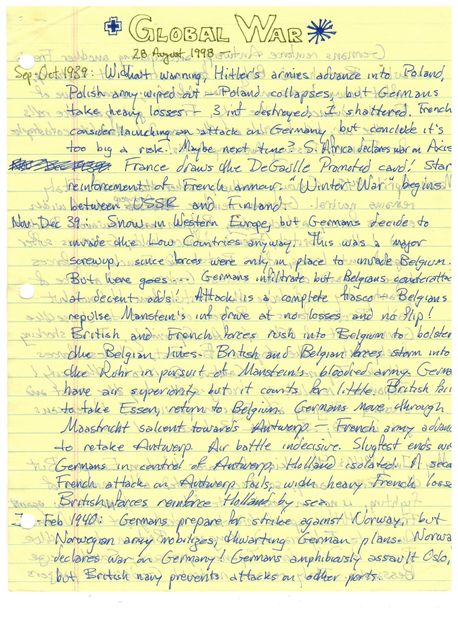 GLOBAL WAR
28 August 1998
Sep-Oct 1939: Without warning, Hitler's armies advance into Poland,
Polish army wiped out - Poland collapses, but Germans
take heavy losses - 3 inf destroyed, 1 shattered. French
consider launching an attack on Germany, but conclude it's
too big a risk. Maybe next time? S. Africa declares war on Axis
France draws the DeGaulle Promoted card! Start
reinforcement of French armour. "Winter War" begins
between USSR and Finland.
Nov-Dec 39: Snow in Western Europe, but Germans decide to
invade the Low Countries anyway. This was a major
screwup, since forces were only in place to invade Belgium.
But here goes...) Germans infiltrate but Belgians counterattack
at decent odds! Attack is a complete fiasco - Belgians
repulse Manstein's inf drive at no losses and no flip!
British and French forces rush into Belgium to bolster
the Belgian lines. British and Belgian forces storm into
the Ruhr in pursuit of Manstein's bloodied army. Germans
have air superiority but it counts for little. British fail
to take Essen, return to Belgium. Germans move through
Maastricht salient towards Antwerp - French army advances
to retake Antwerp. Air battle indecisive. Slugfest ends with
Germans in control of Antwerp, Holland isolated. A second
French attack on Antwerp fails, with heavy French losses
British forces reinforce Holland by sea.
-Feb 1940: Germans prepare for strike against Norway, but
Norwegian army mobilizes, thwarting German plans. Norway
declares war on Germany! Germans amphibiously assault Oslo,
but British navy prevents attacks on other ports.